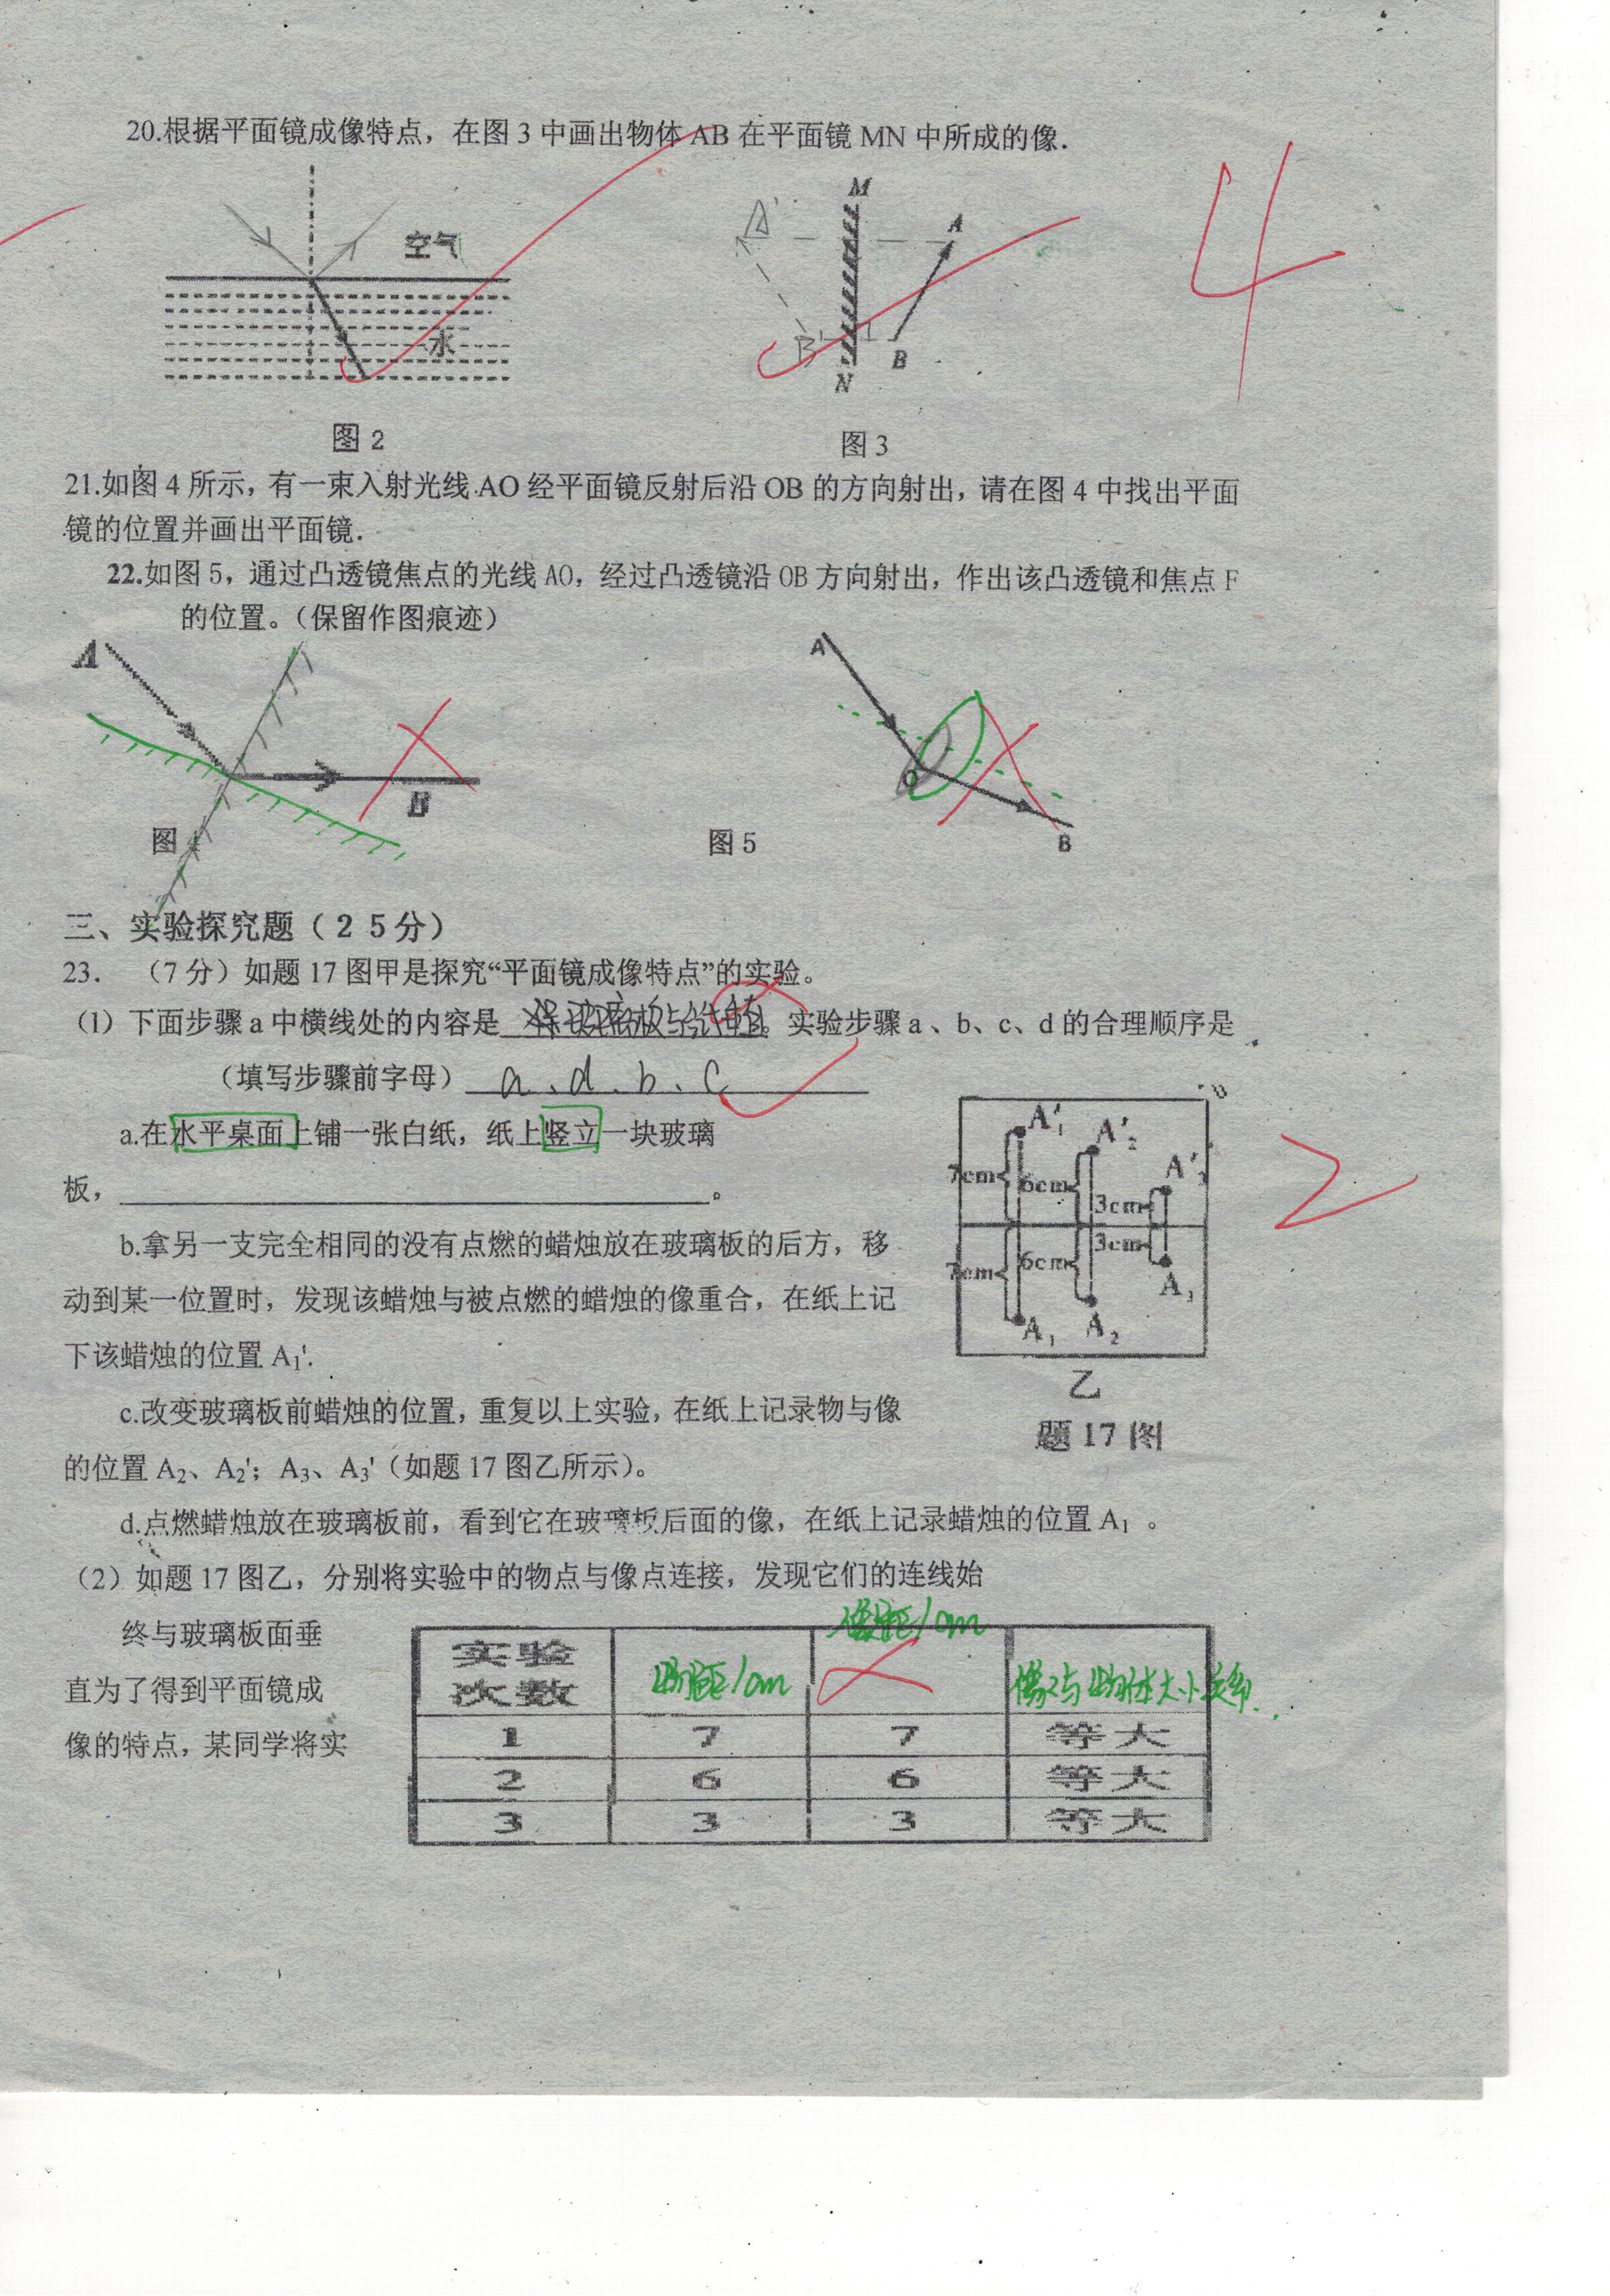 20.根据平面镜成像特点，在图 3 中画出物体 AB 在平面镜 MN 中所成的像．
空气
水
图 2
M
A
A'
B'
B
N
图 3
4
21.如图 4 所示，有一束入射光线 AO 经平面镜反射后沿 OB 的方向射出，请在图 4 中找出平面
镜的位置并画出平面镜．
22.如图 5，通过凸透镜焦点的光线 AO，经过凸透镜沿 OB 方向射出，作出该凸透镜和焦点 F
的位置。（保留作图痕迹）
A
B
图
A
O
B
图 5
三、实验探究题（２５分）
23． （7 分）如题 17 图甲是探究“平面镜成像特点”的实验。
（1）下面步骤 a 中横线处的内容是 玻璃板与纸 。实验步骤 a 、b、c、d 的合理顺序是
（填写步骤前字母） a、d、b、c
a.在水平桌面上铺一张白纸，纸上竖立一块玻璃
板， 。
b.拿另一支完全相同的没有点燃的蜡烛放在玻璃板的后方，移
动到某一位置时，发现该蜡烛与被点燃的蜡烛的像重合，在纸上记
下该蜡烛的位置 A₁'.
c.改变玻璃板前蜡烛的位置，重复以上实验，在纸上记录物与像
的位置 A₂、A₂'；A₃、A₃'（如题 17 图乙所示）。
d.点燃蜡烛放在玻璃板前，看到它在玻璃板后面的像，在纸上记录蜡烛的位置 A₁ 。
A'₁
A'₂
A'₃
7cm 6cm 3cm
7cm 6cm 3cm
A₁
A₂
A₃
乙
题 17 图
2
（2）如题 17 图乙，分别将实验中的物点与像点连接，发现它们的连线始
终与玻璃板面垂
直为了得到平面镜成
像的特点，某同学将实
实验次数 物距/cm 像距/cm 像与物体大小关系
1 7 7 等大
2 6 6 等大
3 3 3 等大